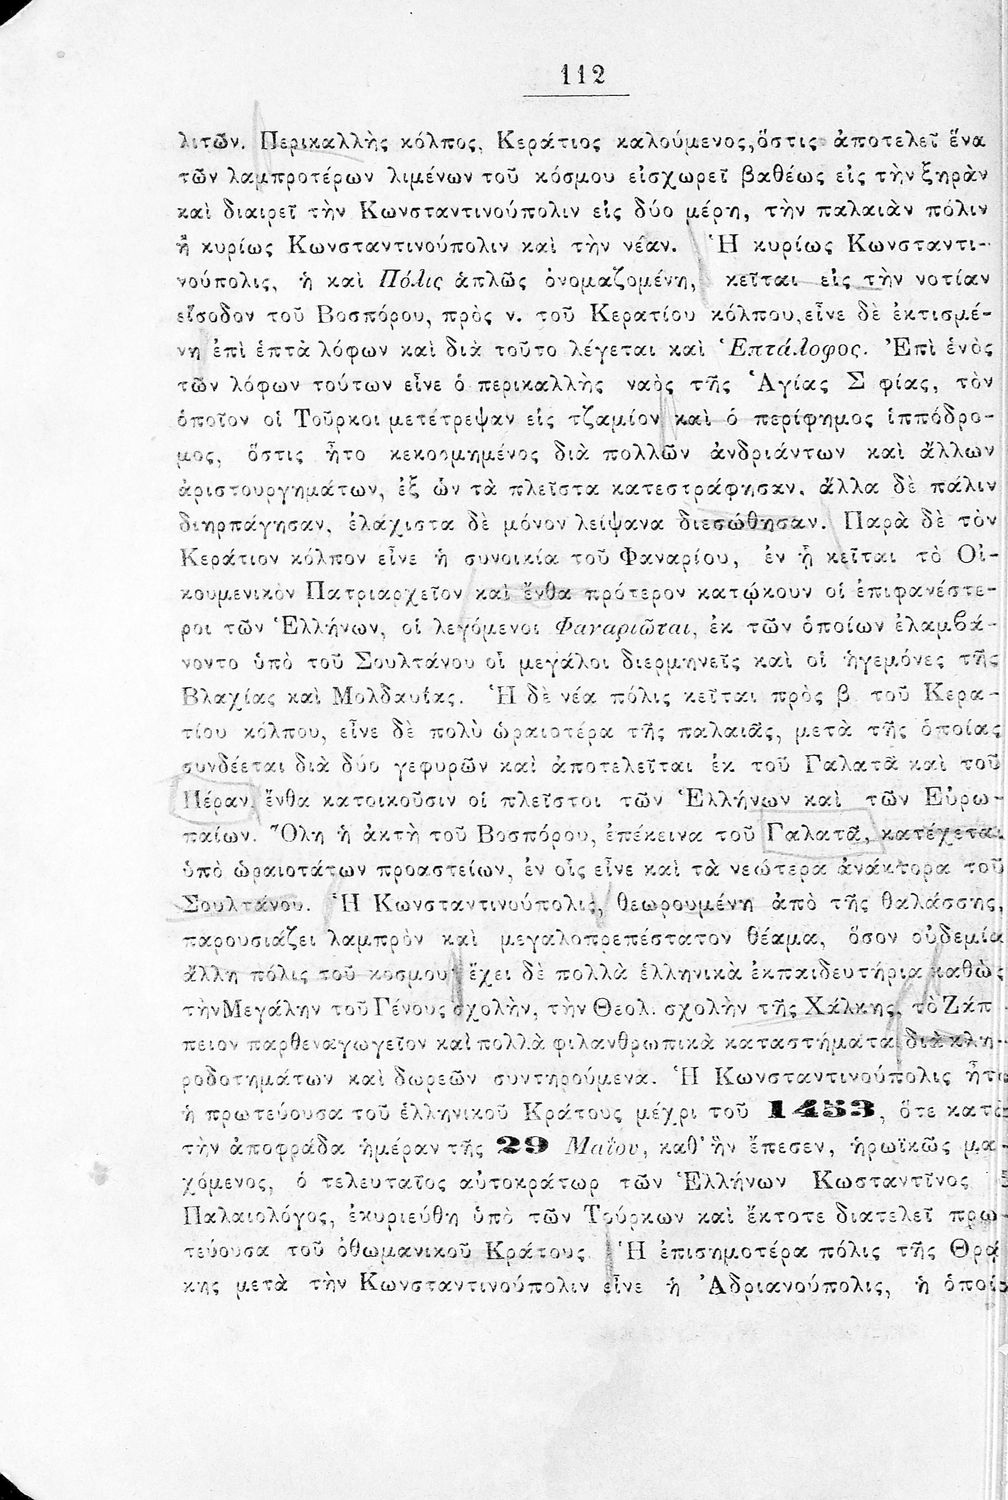 112
λιτῶν. Περικαλλὴς κόλπος, Κεράτιος καλούμενος, ὅστις ἀποτελεῖ ἕνα
τῶν λαμπροτέρων λιμένων τοῦ κόσμου εἰσχωρεῖ βαθέως εἰς τὴν ξηρὰν
καὶ διαιρεῖ τὴν Κωνσταντινούπολιν εἰς δύο μέρη, τὴν παλαιὰν πόλιν
ἢ κυρίως Κωνσταντινούπολιν καὶ τὴν νέαν. Ἡ κυρίως Κωνσταντι-
νούπολις, ἡ καὶ Πόλις ἁπλῶς ὀνομαζομένη, κεῖται εἰς τὴν νοτίαν
εἴσοδον τοῦ Βοσπόρου, πρὸς ν. τοῦ Κερατίου κόλπου, εἶνε δὲ ἐκτισμέ-
νη ἐπὶ ἑπτὰ λόφων καὶ διὰ τοῦτο λέγεται καὶ Ἑπτάλοφος. Ἐπὶ ἑνὸς
τῶν λόφων τούτων εἶνε ὁ περικαλλὴς ναὸς τῆς Ἁγίας Σ φίας, τὸν
ὁποῖον οἱ Τοῦρκοι μετέτρεψαν εἰς τζαμίον καὶ ὁ περίφημος ἱππόδρο-
μος, ὅστις ἦτο κεκοσμημένος διὰ πολλῶν ἀνδριάντων καὶ ἄλλων
ἀριστουργημάτων, ἐξ ὧν τὰ πλεῖστα κατεστράφησαν, ἄλλα δὲ πάλιν
διηρπάγησαν, ἐλάχιστα δὲ μόνον λείψανα διεσώθησαν. Παρὰ δὲ τὸν
Κεράτιον κόλπον εἶνε ἡ συνοικία τοῦ Φαναρίου, ἐν ᾗ κεῖται τὸ Οἰ-
κουμενικὸν Πατριαρχεῖον καὶ ἔνθα πρότερον κατῴκουν οἱ ἐπιφανέστε-
ροι τῶν Ἑλλήνων, οἱ λεγόμενοι Φαναριῶται, ἐκ τῶν ὁποίων ἐλαμβά-
νοντο ὑπὸ τοῦ Σουλτάνου οἱ μεγάλοι διερμηνεῖς καὶ οἱ ἡγεμόνες τῆς
Βλαχίας καὶ Μολδαυίας. Ἡ δὲ νέα πόλις κεῖται πρὸς β. τοῦ Κερα-
τίου κόλπου, εἶνε δὲ πολὺ ὡραιοτέρα τῆς παλαιᾶς, μετὰ τῆς ὁποίας
συνδέεται διὰ δύο γεφυρῶν καὶ ἀποτελεῖται ἐκ τοῦ Γαλατᾶ καὶ τοῦ
Πέραν, ἔνθα κατοικοῦσιν οἱ πλεῖστοι τῶν Ἑλλήνων καὶ τῶν Εὐρω-
παίων. Ὅλη ἡ ἀκτὴ τοῦ Βοσπόρου, ἐπέκεινα τοῦ Γαλατᾶ, κατέχεται
ὑπὸ ὡραιοτάτων προαστείων, ἐν οἷς εἶνε καὶ τὰ νεώτερα ἀνάκτορα τοῦ
Σουλτάνου. Ἡ Κωνσταντινούπολις, θεωρουμένη ἀπὸ τῆς θαλάσσης,
παρουσιάζει λαμπρὸν καὶ μεγαλοπρεπέστατον θέαμα, ὅσον οὐδεμία
ἄλλη πόλις τοῦ κόσμου· ἔχει δὲ πολλὰ ἑλληνικὰ ἐκπαιδευτήρια καθὼς
τὴν Μεγάλην τοῦ Γένους σχολὴν, τὴν Θεολ. σχολὴν τῆς Χάλκης, τὸ Ζάπ-
πειον παρθεναγωγεῖον καὶ πολλὰ φιλανθρωπικὰ καταστήματα διὰ κλη-
ροδοτημάτων καὶ δωρεῶν συντηρούμενα. Ἡ Κωνσταντινούπολις ἦτο
ἡ πρωτεύουσα τοῦ ἑλληνικοῦ Κράτους μέχρι τοῦ 1453, ὅτε κατὰ
τὴν ἀποφράδα ἡμέραν τῆς 29 Μαΐου, καθ' ἣν ἔπεσεν, ἡρωϊκῶς μα-
χόμενος, ὁ τελευταῖος αὐτοκράτωρ τῶν Ἑλλήνων Κωσταντῖνος ὁ
Παλαιολόγος, ἐκυριεύθη ὑπὸ τῶν Τούρκων καὶ ἔκτοτε διατελεῖ πρω-
τεύουσα τοῦ ὀθωμανικοῦ Κράτους. Ἡ ἐπισημοτέρα πόλις τῆς Θρά
κης μετὰ τὴν Κωνσταντινούπολιν εἶνε ἡ Ἀδριανούπολις, ἡ ὁποία